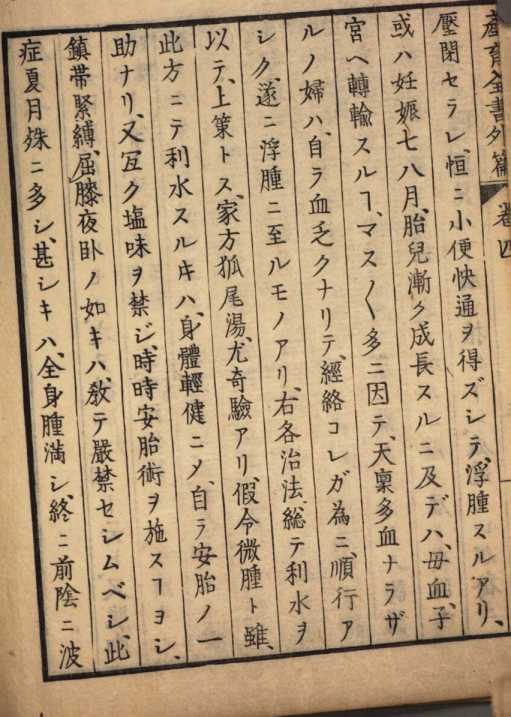 產育全書外篇 卷四
壓閉セラレ、恒ニ小便快通ヲ得ズシテ、浮腫スルアリ、
或ハ妊娠七八月、胎兒漸ク成長スルニ及デハ、毋血、子
宮ヘ轉輸スルヿ、マス〱多ニ因テ、天稟多血ナラザ
ルノ婦ハ、自ラ血乏クナリテ、經絡コレガ為ニ、順行ア
シク、遂ニ浮腫ニ至ルモノアリ、右各治法、総テ利水ヲ
以テ、上策トス、家方狐尾湯、尤奇驗アリ、假令微腫ト雖、
此方ニテ利水スルヰハ、身體輕健ニメ、自ラ安胎ノ一
助ナリ、又冝ク塩味ヲ禁ジ、時時安胎術ヲ施スヿヨシ、
鎮帯緊縛、屈膝夜臥ノ如キハ、敎テ嚴禁セシムベシ、此
症夏月殊ニ多シ、甚シキハ、全身腫満シ、終ニ前陰ニ波